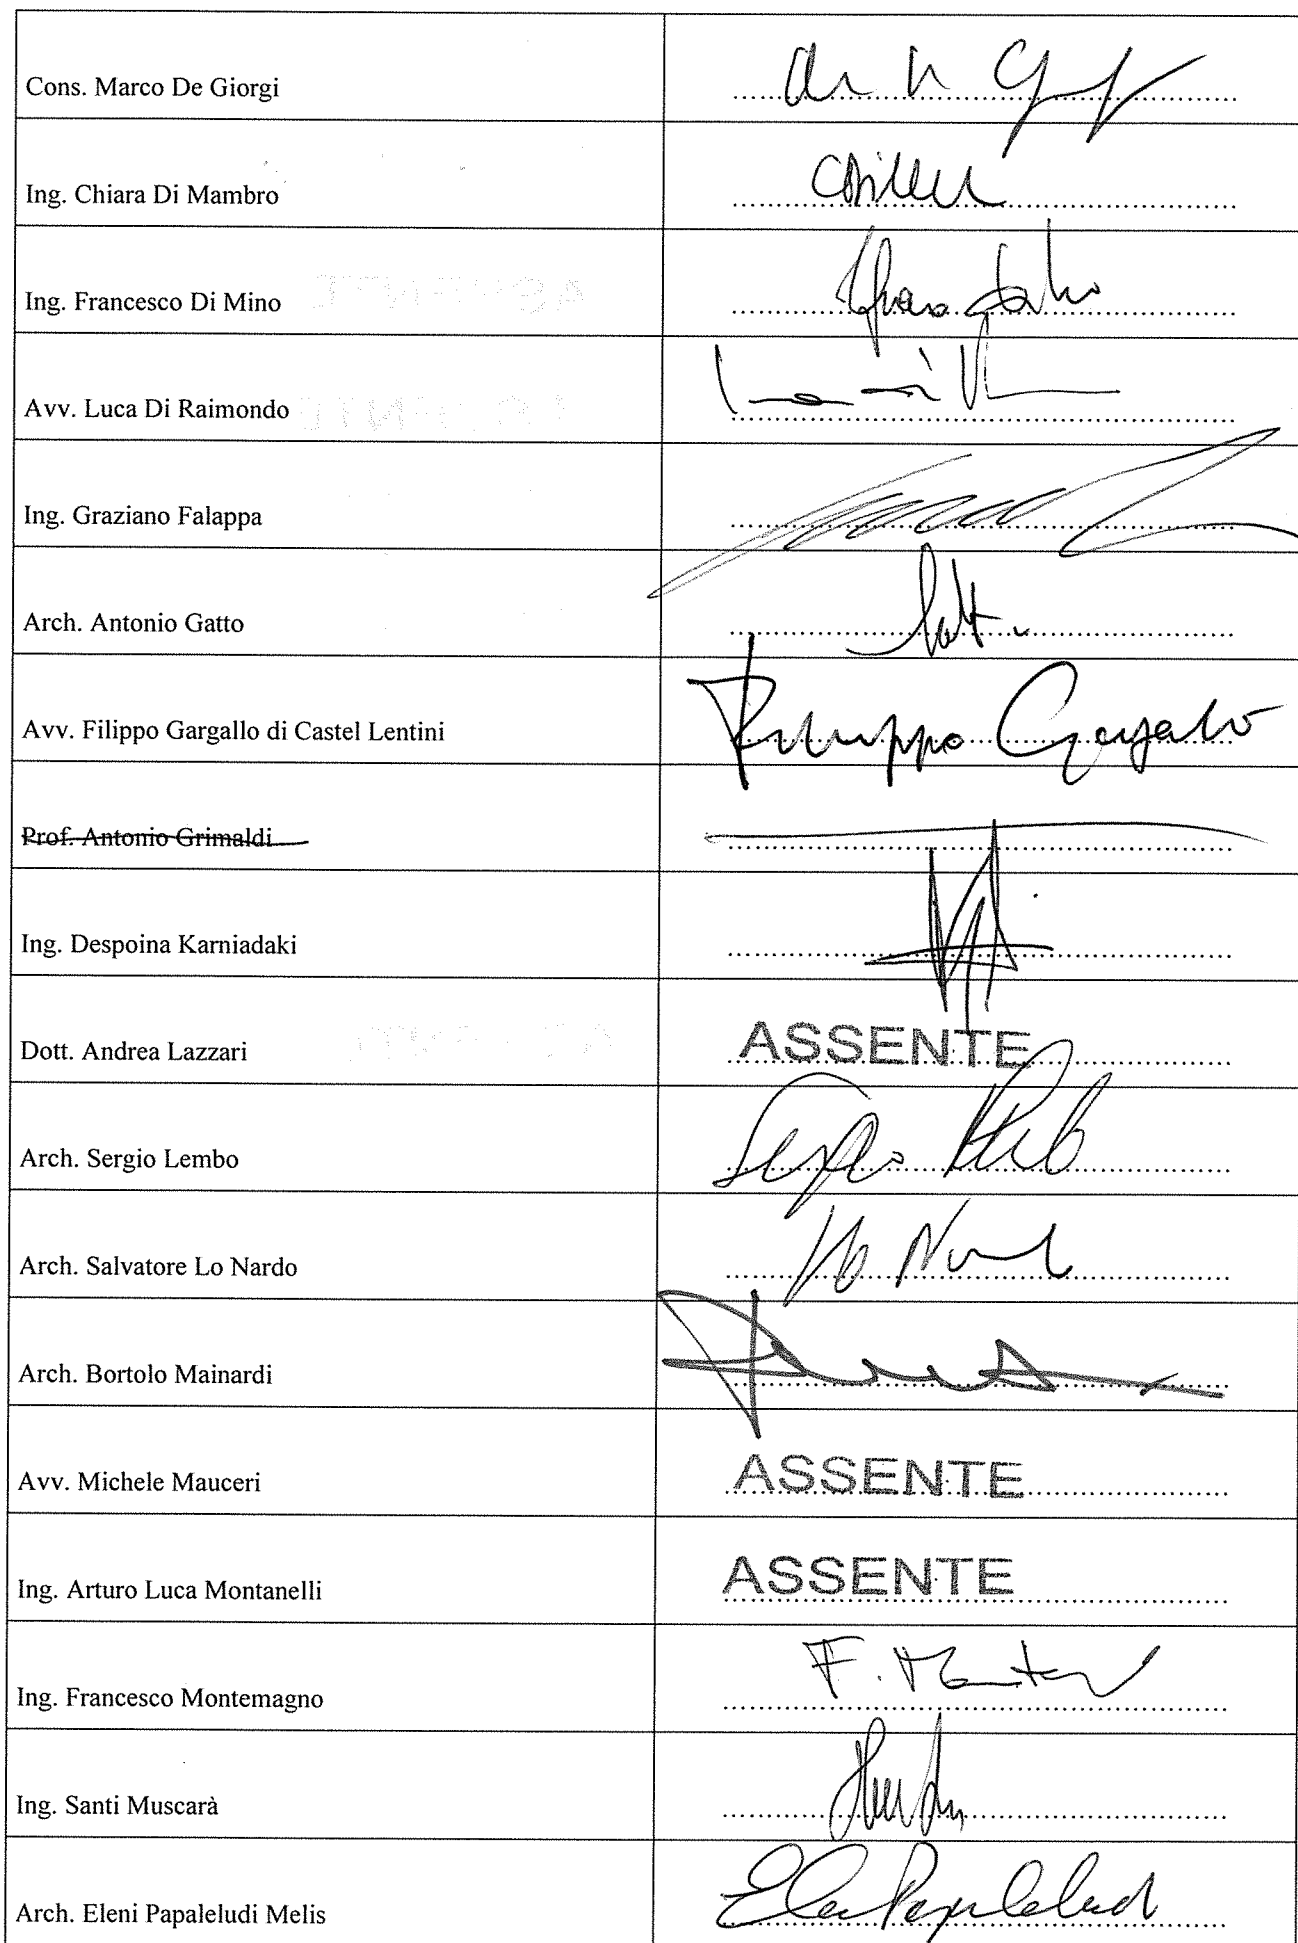 Cons. Marco De Giorgi
Ing. Chiara Di Mambro
Ing. Francesco Di Mino
Avv. Luca Di Raimondo
Ing. Graziano Falappa
Arch. Antonio Gatto
Avv. Filippo Gargallo di Castel Lentini Filippo Gargallo
Prof. Antonio Grimaldi
Ing. Despoina Karniadaki
Dott. Andrea Lazzari ASSENTE
Arch. Sergio Lembo Sergio
Arch. Salvatore Lo Nardo
Arch. Bortolo Mainardi
Avv. Michele Mauceri ASSENTE
Ing. Arturo Luca Montanelli ASSENTE
Ing. Francesco Montemagno F.
Ing. Santi Muscarà
Arch. Eleni Papaleludi Melis